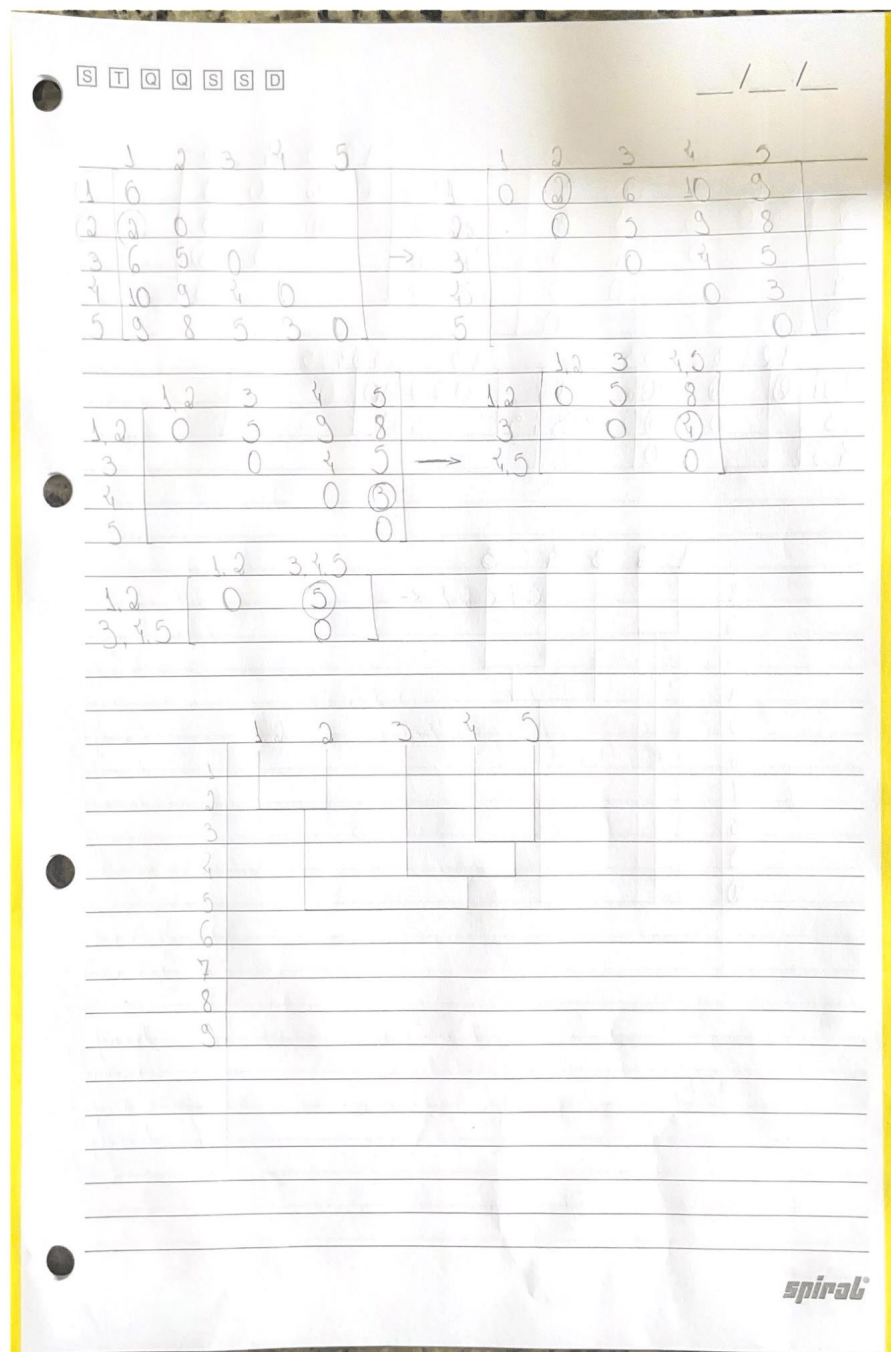 S T Q Q S S D
__/__/__
1 2 3 4 5
1 0
2 2 0
3 6 5 0
4 10 9 4 0
5 9 8 5 3 0
→
1 2 3 4 5
1 0 2 6 10 9
2 0 5 9 8
3 0 4 5
4 0 3
5 0
1,2 3 4 5
1,2 0 5 9 8
3 0 4 5
4 0 3
5 0
→
1,2 3 4,5
1,2 0 5 8
3 0 4
4,5 0
1,2 3,4,5
1,2 0 5
3,4,5 0
1 2 3 4 5
1
2
3
4
5
6
7
8
9
spiral